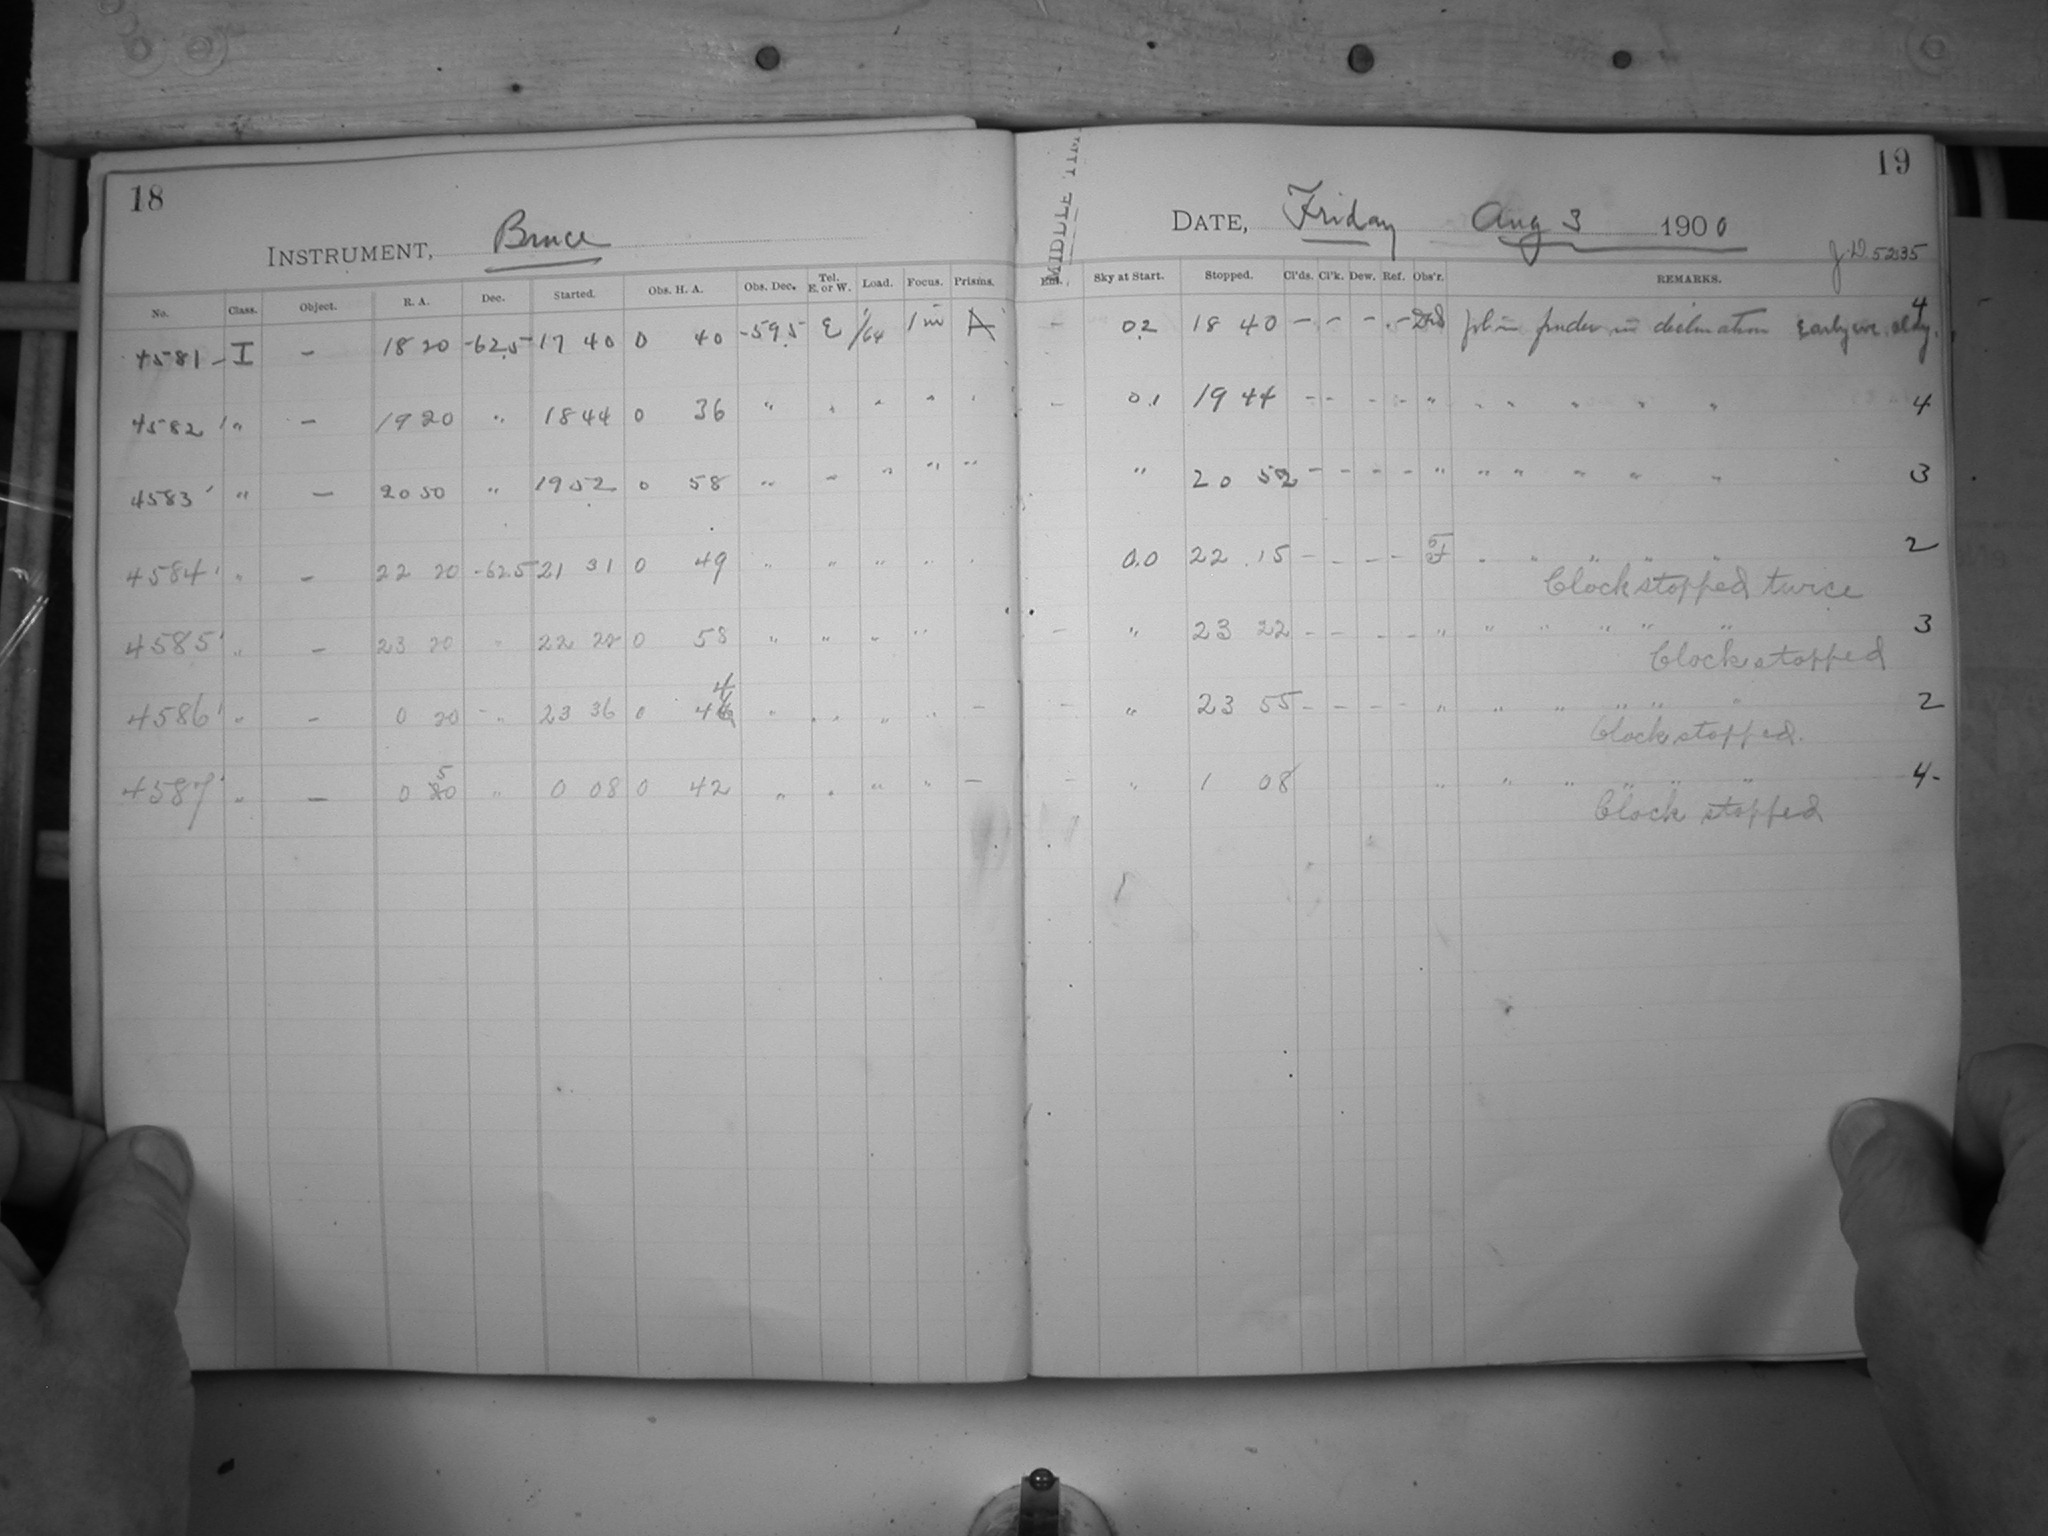 18
INSTRUMENT, Bruce
No. Class. Object. R. A. Dec. Started. Obs. H. A. Obs. Dec. Tel. E. or W. Load. Focus. Prisms.
4581 I — 18 20 -62.5 17 40 0 40 -59.5 E 1/64 1 in A
4582 " — 19 20 " 18 44 0 36 " " " " "
4583 " — 20 50 " 19 52 0 58 " " " " "
4584 " — 22 20 -62.5 21 31 0 49 " " " " "
4585 " — 23 20 " 22 22 0 58 " " " "
4586 " — 0 20 " 23 36 0 44 " " " " —
4587 " — 0 50 " 0 08 0 42 " " " " —
19
MIDDLE
DATE, Friday Aug 3 1900
J.D. 5235
Sky at Start. Stopped. Cl'ds. Cl'k. Dew. Ref. Obs'r. REMARKS.
— 0.2 18 40 — — — — in declination 4
— 0.1 19 44 — — — — " " " " " " 4
" 20 52 — — — — " " " " " " 3
0.0 22 15 — — — — " " " " " 2
Clock stopped twice
— " 23 22 — — — — " " " " " " 3
Clock stopped
— " 23 55 — — — — " " " " " " 2
Clock stopped.
— " 1 08 " " " " " " 4-
Clock stopped